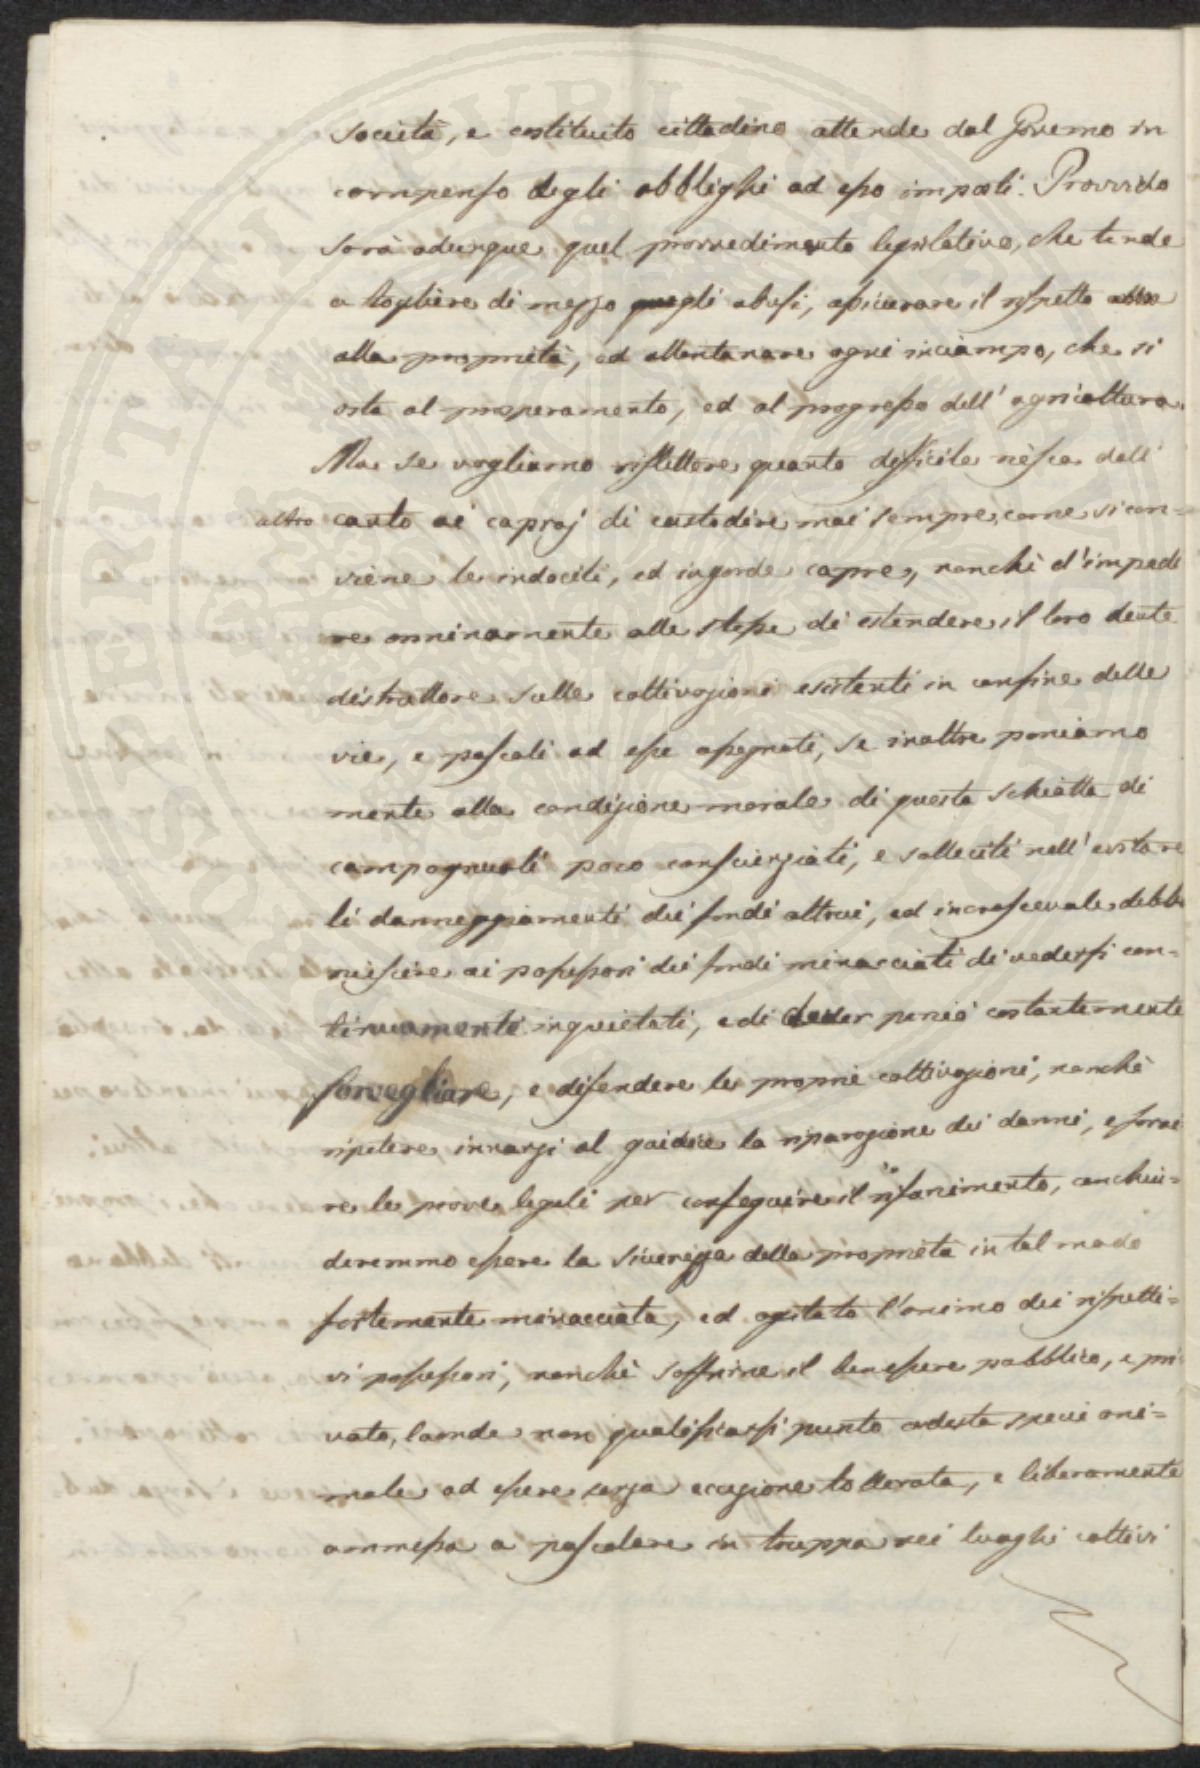 società, e costituito cittadino attende dal Governo in
compenso degli obblighi ad esso imposti. Provvido
sarà adunque quel provvedimento legislativo, che tende
a togliere di mezzo quegli abusi, assicurare il rispetto
alla proprietà, ed allontanare ogni inciampo, che si
osta al prosperamento, ed al progresso dell' agricoltura.
Ma se vogliamo riflettere quanto difficile riesca dall'
altro canto ai capraj di custodire mai sempre, come si con=
viene le indocili, ed ingorde capre, nonchè d'impedi
re onninamente alle stesse di estendere il loro dente
distruttore sulle coltivazioni esistenti in confine delle
vie, e pascoli ad esse assegnati, se inoltre poniamo
mente alla condizione morale di questa schiatta di
campagnuoli poco conscienziati, e solleciti nell' evitare
li danneggiamenti dei fondi altrui, ed increscevole debba
riescire ai possessori dei fondi minacciati di vedersi con=
tinuamente inquietati, e di dover perciò costantemente
sorvegliare, e difendere le proprie coltivazioni, nonchè
ripetere innanzi al giudice la riparazione dei danni, e forni
re le prove legali per conseguire il risarcimento, conchiu=
deremmo essere la sicurezza della proprietà in tal modo
fortemente minacciata, ed agitato l'animo dei rispetti=
vi possessori, nonchè soffrirne il benessere pubblico, e pri
vato, laonde non qualificarsi punto codesta specie ani=
male ad essere senza eccezione tollerata, e liberamente
ammessa a pascolare in truppa nei luoghi coltivi
SOSPERITATI PUBLICAE AUG